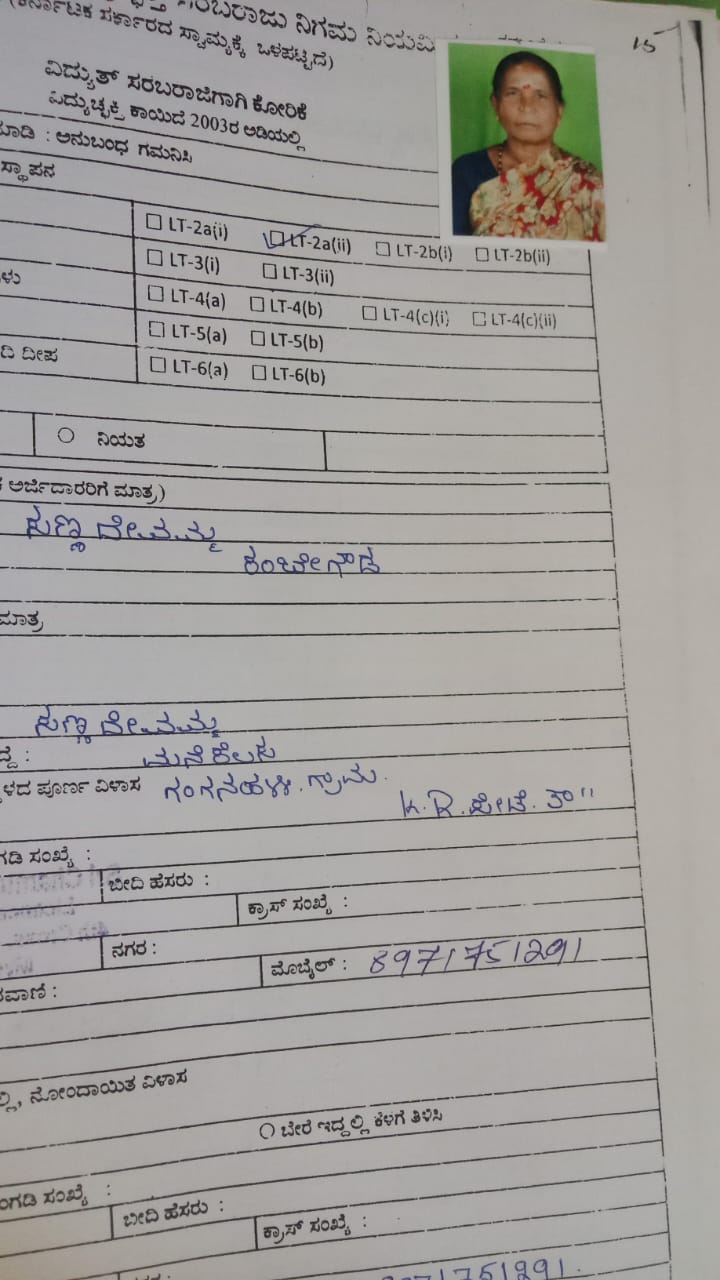 ಸರಬರಾಜು ನಿಗಮ ನಿಯಮಿತ
(ಕರ್ನಾಟಕ ಸರ್ಕಾರದ ಸ್ವಾಮ್ಯಕ್ಕೆ ಒಳಪಟ್ಟಿದೆ)
15
ವಿದ್ಯುತ್ ಸರಬರಾಜಿಗಾಗಿ ಕೋರಿಕೆ
ವಿದ್ಯುಚ್ಛಕ್ತಿ ಕಾಯಿದೆ 2003ರ ಅಡಿಯಲ್ಲಿ
ಮಾಡಿ : ಅನುಬಂಧ ಗಮನಿಸಿ
ಸ್ಥಾಪನ
☐ LT-2a(i) ☑ LT-2a(ii) ☐ LT-2b(i) ☐ LT-2b(ii)
☐ LT-3(i) ☐ LT-3(ii)
ಳು ☐ LT-4(a) ☐ LT-4(b) ☐ LT-4(c)(i) ☐ LT-4(c)(ii)
☐ LT-5(a) ☐ LT-5(b)
ದಿ ದೀಪ ☐ LT-6(a) ☐ LT-6(b)
○ ನಿಯತ
ಅರ್ಜಿದಾರರಿಗೆ ಮಾತ್ರ)
ಸಣ್ಣ ದೇವಮ್ಮ
ಕಂಚೇಗೌಡ
ಮಾತ್ರ
ಸಣ್ಣ ದೇವಮ್ಮ
ದ್ದೆ : ಮನೆಕೆಲಸ
ಳದ ಪೂರ್ಣ ವಿಳಾಸ ಗಂಗನಹಳ್ಳಿ. ಗ್ರಾಮ.
K.R.ಪೇಟೆ. ತಾ"
ಗಡಿ ಸಂಖ್ಯೆ :
ಬೀದಿ ಹೆಸರು :
ಕ್ರಾಸ್ ಸಂಖ್ಯೆ :
ನಗರ :
ಮೊಬೈಲ್ : 8971751291
ರವಾಣಿ :
ಲ್ಲಿ, ನೋಂದಾಯಿತ ವಿಳಾಸ
○ ಬೇರೆ ಇದ್ದಲ್ಲಿ ಕೆಳಗೆ ತಿಳಿಸಿ
ಂಗಡಿ ಸಂಖ್ಯೆ :
ಬೀದಿ ಹೆಸರು :
ಕ್ರಾಸ್ ಸಂಖ್ಯೆ :
8971751291.